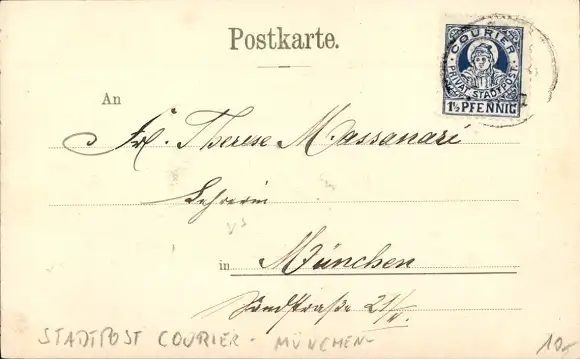 Postkarte.
COURIER
PRIVAT STADTPOST
1½ PFENNIG
An
Frl. Therese Massanari
Lehrerin
in München
21/II.
STADTPOST COURIER - MÜNCHEN -
10.-